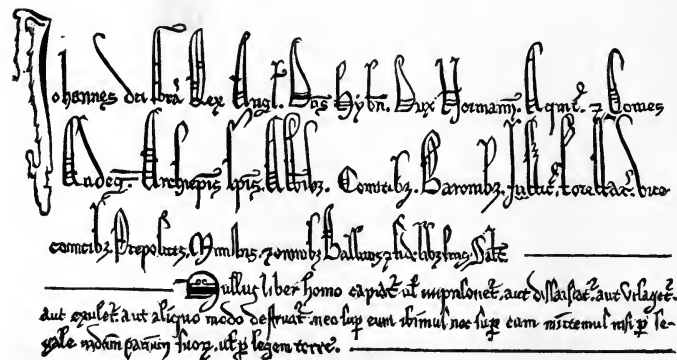 Johannes dei grā Rex Angl. Dn̄s Hybn̄. Dux Normann̄. Aquit̄. ⁊ Comes
Andeg̅. Archiepis̄ Epis̄. Abbibȝ. Comitibȝ. Baronibȝ. Justic̄. Forestar̄. vice
comitibȝ. Prepositis. Ministris. ⁊ omnibȝ Ballivis ⁊ fidelibȝ suis. Salt̄
Nullus liber homo capiat᷑ vl̄ imprisonet᷑. aut dissaisiat᷑. aut vtlaget᷑.
aut exulet᷑ aut aliquo modo destruat᷑. nec sup̱ eum ibimus nec sup̱ eum mittemus nisi p̱ le-
gale judiciū parium suoꝝ. vl̄ p̱ legem terre.